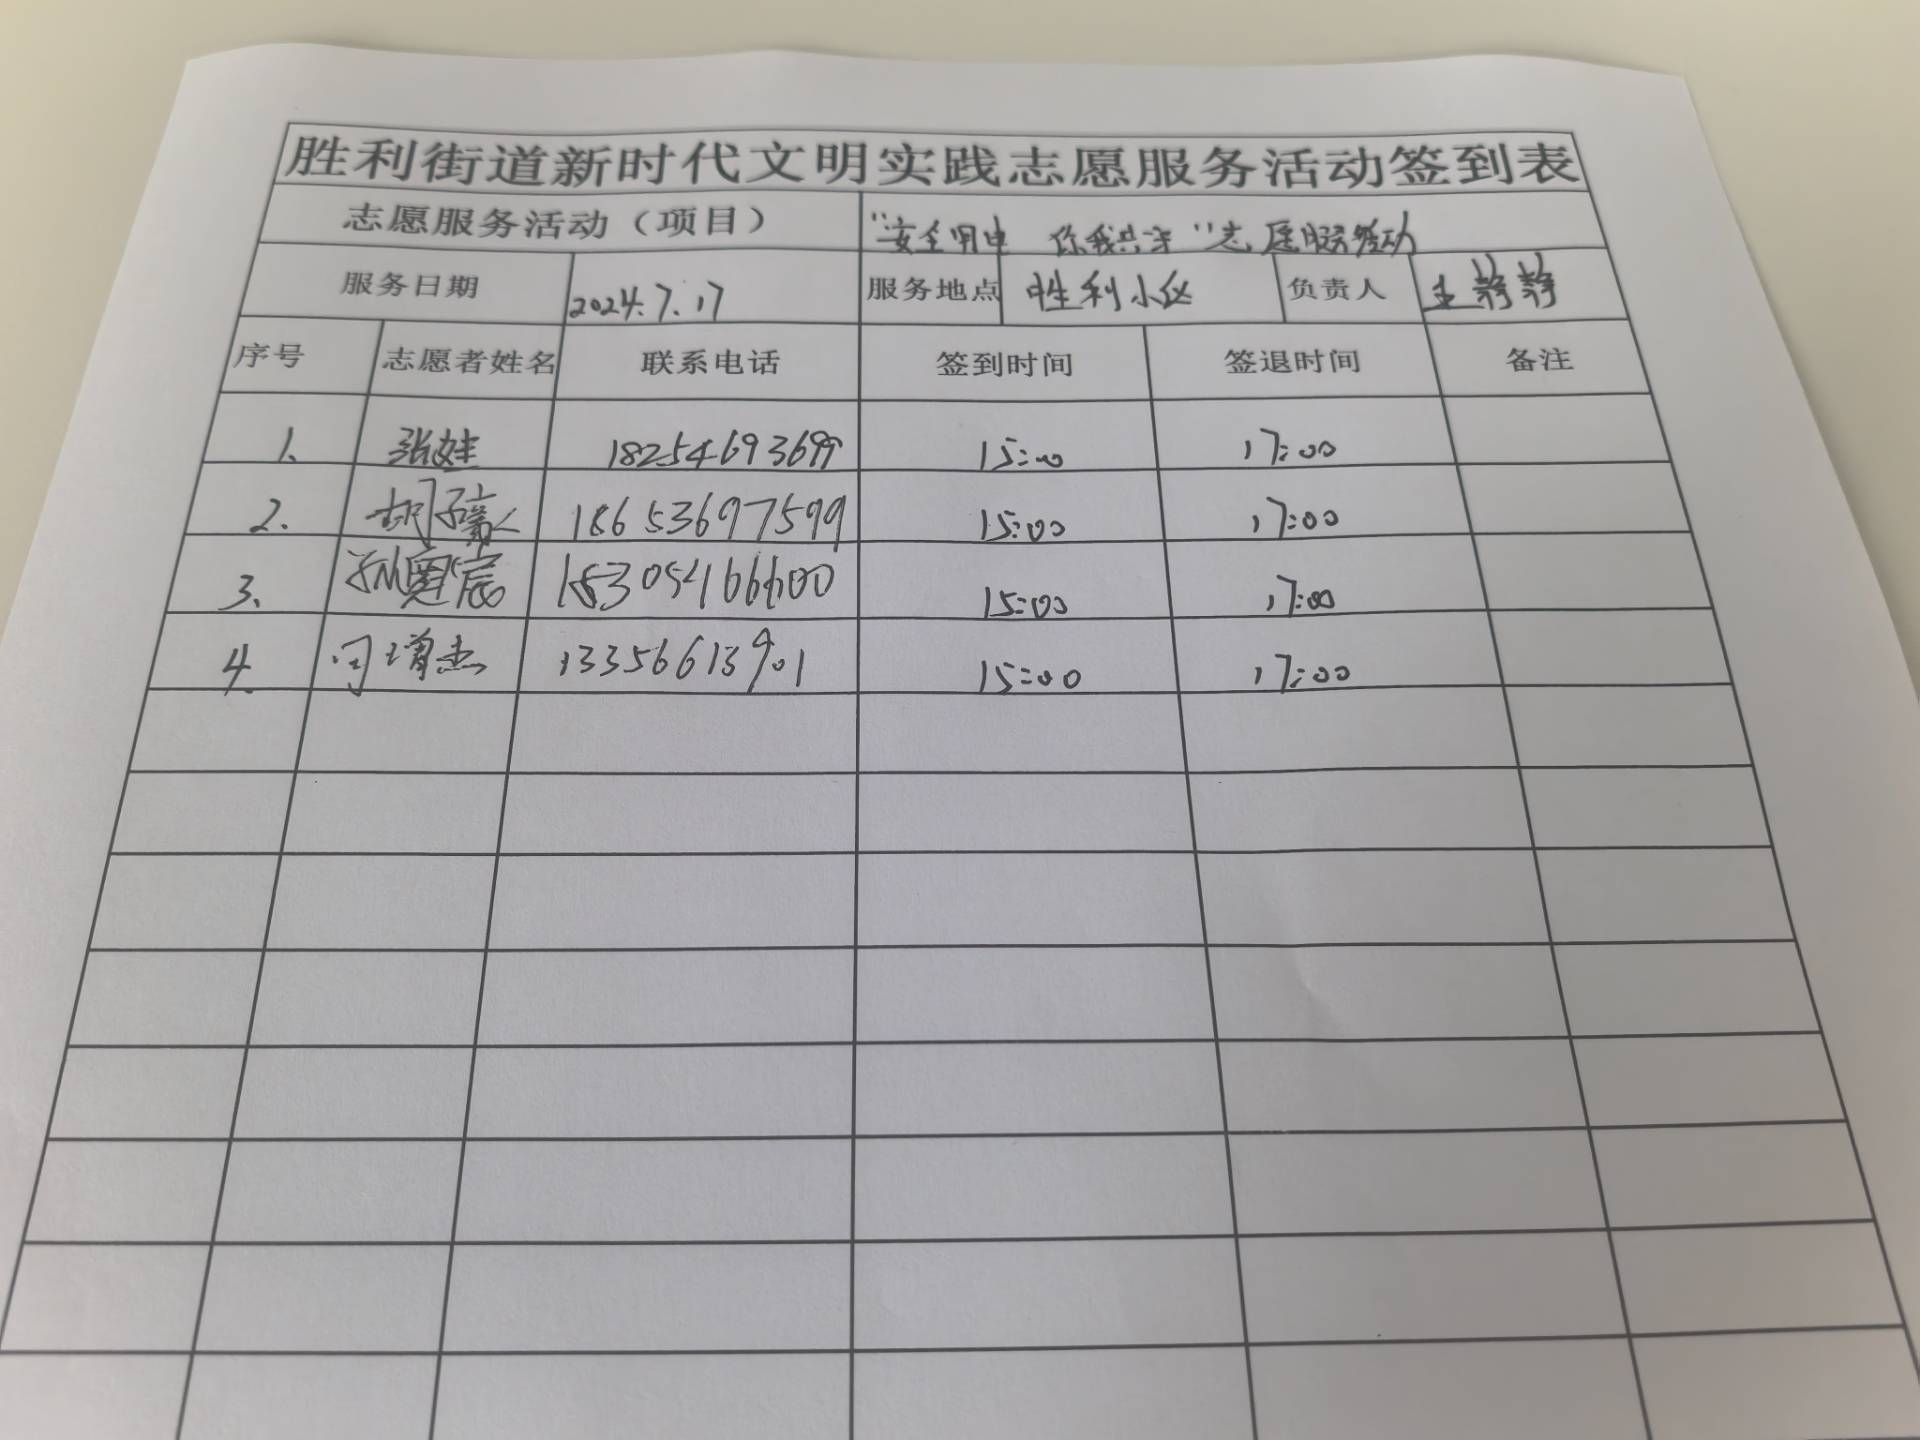 胜利街道新时代文明实践志愿服务活动签到表
志愿服务活动（项目） “安全用电 你我共守”志愿服务活动
服务日期 2024.7.17 服务地点 胜利小区 负责人 王静静
序号 志愿者姓名 联系电话 签到时间 签退时间 备注
1. 张娃 18254693699 15:00 17:00
2. 胡 18653697599 15:00 17:00
3. 孙 宸 15:00 17:00
4. 闫增杰 13356613901 15:00 17:00